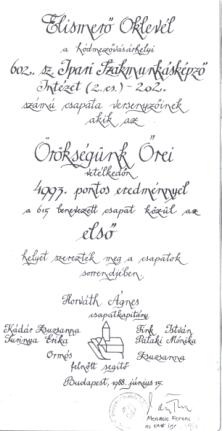 Elismerő Oklevél
a Hódmezővásárhelyi
602. sz. Ipari Szakmunkásképző
Intézet (2. cs.) - 202.
számú csapata versenyzőinek
akik az
Örökségünk Őrei
vetélkedőn
4993. pontos eredménnyel
a 615 benevezett csapat közül az
első
helyet szerezték meg a csapatok
sorrendjében.
Horváth Ágnes
csapatkapitány
Kádár Zsuzsanna Fink István
Surinya Erika Pataki Mónika
Ormos Zsuzsanna
felnőtt segítő
Budapest, 1988. június